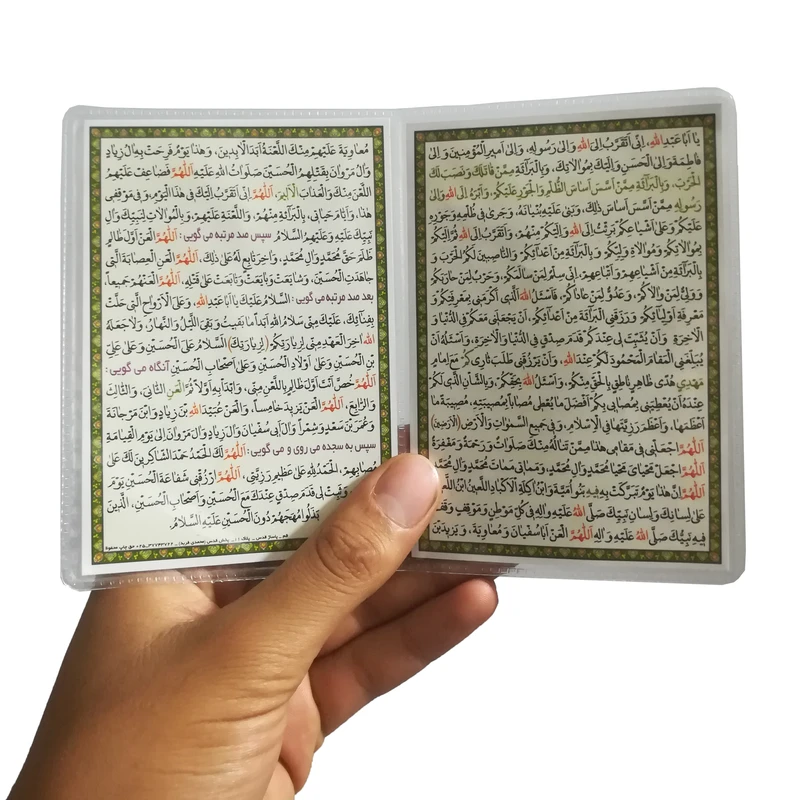 یا اَبا عَبْدِ اللهِ، اِنّی اَتَقَرَّبُ اِلیَ اللهِ وَ اِلیٰ رَسُولِهِ، وَ اِلیٰ اَمیرِ الْمُؤْمِنینَ وَ اِلیٰ
فاطِمَةَ وَ اِلیَ الْحَسَنِ وَ اِلَیْکَ بِمُوالاتِکَ، وَ بِالْبَرآئَةِ مِمَّنْ قاتَلَکَ وَ نَصَبَ لَکَ
الْحَرْبَ، وَ بِالْبَرآئَةِ مِمَّنْ اَسَّسَ اَساسَ الظُّلْمِ وَ الْجَوْرِ عَلَیْکُمْ، وَ اَبْرَءُ اِلیَ اللهِ وَ اِلیٰ
رَسُولِهِ مِمَّنْ اَسَّسَ اَساسَ ذٰلِکَ، وَ بَنیٰ عَلَیْهِ بُنْیانَهُ، وَ جَریٰ فی ظُلْمِهِ وَ جَوْرِهِ
عَلَیْکُمْ وَ عَلیٰ اَشْیاعِکُمْ، بَرِئْتُ اِلیَ اللهِ وَ اِلَیْکُمْ مِنْهُمْ، وَ اَتَقَرَّبُ اِلیَ اللهِ ثُمَّ اِلَیْکُمْ
بِمُوالاتِکُمْ وَ مُوالاةِ وَلِیِّکُمْ، وَ بِالْبَرآئَةِ مِنْ اَعْدآئِکُمْ، وَ النّاصِبینَ لَکُمُ الْحَرْبَ وَ
بِالْبَرآئَةِ مِنْ اَشْیاعِهِمْ وَ اَتْباعِهِمْ، اِنّی سِلْمٌ لِمَنْ سالَمَکُمْ، وَ حَرْبٌ لِمَنْ حارَبَکُمْ
وَ وَلِیٌّ لِمَنْ والاکُمْ، وَ عَدُوٌّ لِمَنْ عاداکُمْ، فَاَسْئَلُ اللهَ الَّذی اَکْرَمَنی بِمَعْرِفَتِکُمْ وَ
مَعْرِفَةِ اَوْلِیآئِکُمْ، وَ رَزَقَنِی الْبَرآئَةَ مِنْ اَعْدآئِکُمْ، اَنْ یَجْعَلَنی مَعَکُمْ فِی الدُّنْیا وَ
الْاٰخِرَةِ، وَ اَنْ یُثَبِّتَ لی عِنْدَکُمْ قَدَمَ صِدْقٍ فِی الدُّنْیا وَ الْاٰخِرَةِ، وَ اَسْئَلُهُ اَنْ
یُبَلِّغَنِی الْمَقامَ الْمَحْمُودَ لَکُمْ عِنْدَ اللهِ، وَ اَنْ یَرْزُقَنی طَلَبَ ثاری مَعَ اِمامٍ
مَهْدِیٍّ هُدًی ظاهِرٍ ناطِقٍ بِالْحَقِّ مِنْکُمْ، وَ اَسْئَلُ اللهَ بِحَقِّکُمْ، وَ بِالشَّاْنِ الَّذی لَکُمْ
عِنْدَهُ اَنْ یُعْطِیَنی بِمُصابی بِکُمْ اَفْضَلَ ما یُعْطی مُصاباً بِمُصیبَتِهِ، مُصیبَةً ما
اَعْظَمَها، وَ اَعْظَمَ رَزِیَّتَها فِی الْاِسْلامِ، وَ فی جَمیعِ السَّمٰواتِ وَ الْاَرْضِ (الْاَرَضینَ)
اَللّٰهُمَّ اجْعَلْنی فی مَقامی هٰذا مِمَّنْ تَنالُهُ مِنْکَ صَلَواتٌ وَ رَحْمَةٌ وَ مَغْفِرَةٌ
اَللّٰهُمَّ اجْعَلْ مَحْیایَ مَحْیا مُحَمَّدٍ وَ آلِ مُحَمَّدٍ، وَ مَماتی مَماتَ مُحَمَّدٍ وَ آلِ مُحَمَّدٍ
اَللّٰهُمَّ اِنَّ هٰذا یَوْمٌ تَبَرَّکَتْ بِهِ بَنُو اُمَیَّةَ وَ ابْنُ آکِلَةِ الْاَکْبادِ اللَّعینُ ابْنُ اللَّعینِ
عَلیٰ لِسانِکَ وَ لِسانِ نَبِیِّکَ صَلَّی اللهُ عَلَیْهِ وَ آلِهِ فی کُلِّ مَوْطِنٍ وَ مَوْقِفٍ وَقَفَ
فیهِ نَبِیُّکَ صَلَّی اللهُ عَلَیْهِ وَ آلِهِ اَللّٰهُمَّ الْعَنْ اَبا سُفْیانَ وَ مُعاوِیَةَ، وَ یَزیدَ بْنَ
مُعاوِیَةَ عَلَیْهِمْ مِنْکَ اللَّعْنَةُ اَبَدَ الْاٰبِدینَ، وَ هٰذا یَوْمٌ فَرِحَتْ بِهِ آلُ زِیادٍ
وَ آلُ مَرْوانَ بِقَتْلِهِمُ الْحُسَیْنَ صَلَواتُ اللهِ عَلَیْهِ اَللّٰهُمَّ فَضاعِفْ عَلَیْهِمُ
اللَّعْنَ مِنْکَ وَ الْعَذابَ الْاَلیمَ، اَللّٰهُمَّ اِنّی اَتَقَرَّبُ اِلَیْکَ فی هٰذَا الْیَوْمِ، وَ فی مَوْقِفی
هٰذا، وَ اَیّامِ حَیاتی، بِالْبَرآئَةِ مِنْهُمْ، وَ اللَّعْنَةِ عَلَیْهِمْ، وَ بِالْمُوالاتِ لِنَبِیِّکَ وَ آلِ
نَبِیِّکَ عَلَیْهِ وَ عَلَیْهِمُ السَّلامُ سپس صد مرتبه می گویی : اَللّٰهُمَّ الْعَنْ اَوَّلَ ظالِمٍ
ظَلَمَ حَقَّ مُحَمَّدٍ وَ آلِ مُحَمَّدٍ، وَ آخِرَ تابِعٍ لَهُ عَلیٰ ذٰلِکَ، اَللّٰهُمَّ الْعَنِ الْعِصابَةَ الَّتی
جاهَدَتِ الْحُسَیْنَ، وَ شایَعَتْ وَ بایَعَتْ وَ تابَعَتْ عَلیٰ قَتْلِهِ، اَللّٰهُمَّ الْعَنْهُمْ جَمیعاً.
بعد صد مرتبه می گویی : اَلسَّلامُ عَلَیْکَ یا اَبا عَبْدِ اللهِ، وَ عَلَی الْاَرْواحِ الَّتی حَلَّتْ
بِفِنآئِکَ، عَلَیْکَ مِنّی سَلامُ اللهِ اَبَداً ما بَقیتُ وَ بَقِیَ اللَّیْلُ وَ النَّهارُ، وَ لا جَعَلَهُ
اللهُ آخِرَ الْعَهْدِ مِنّی لِزِیارَتِکُمْ (لِزِیارَتِکَ) اَلسَّلامُ عَلَی الْحُسَیْنِ وَ عَلیٰ عَلِیِّ
بْنِ الْحُسَیْنِ وَ عَلیٰ اَوْلادِ الْحُسَیْنِ وَ عَلیٰ اَصْحابِ الْحُسَیْنِ آنگاه می گویی :
اَللّٰهُمَّ خُصَّ اَنْتَ اَوَّلَ ظالِمٍ بِاللَّعْنِ مِنّی، وَ ابْدَاْ بِهِ اَوَّلاً ثُمَّ الْعَنِ الثّانِیَ، وَ الثّالِثَ
وَ الرّابِعَ، اَللّٰهُمَّ الْعَنْ یَزیدَ خامِساً، وَ الْعَنْ عُبَیْدَ اللهِ بْنَ زِیادٍ وَ ابْنَ مَرْجانَةَ
وَ عُمَرَ بْنَ سَعْدٍ وَ شِمْراً وَ آلَ اَبی سُفْیانَ وَ آلَ زِیادٍ وَ آلَ مَرْوانَ اِلیٰ یَوْمِ الْقِیامَةِ
سپس به سجده می روی و می گویی : اَللّٰهُمَّ لَکَ الْحَمْدُ حَمْدَ الشّاکِرینَ لَکَ عَلیٰ
مُصابِهِمْ، اَلْحَمْدُ لِلّٰهِ عَلیٰ عَظیمِ رَزِیَّتی، اَللّٰهُمَّ ارْزُقْنی شَفاعَةَ الْحُسَیْنِ یَوْمَ
وَ ثَبِّتْ لی قَدَمَ صِدْقٍ عِنْدَکَ مَعَ الْحُسَیْنِ وَ اَصْحابِ الْحُسَیْنِ، الَّذینَ
بَذَلُوا مُهَجَهُمْ دُونَ الْحُسَیْنِ عَلَیْهِ السَّلامُ.
قم ـ پاساژ قدس ـ پلاک